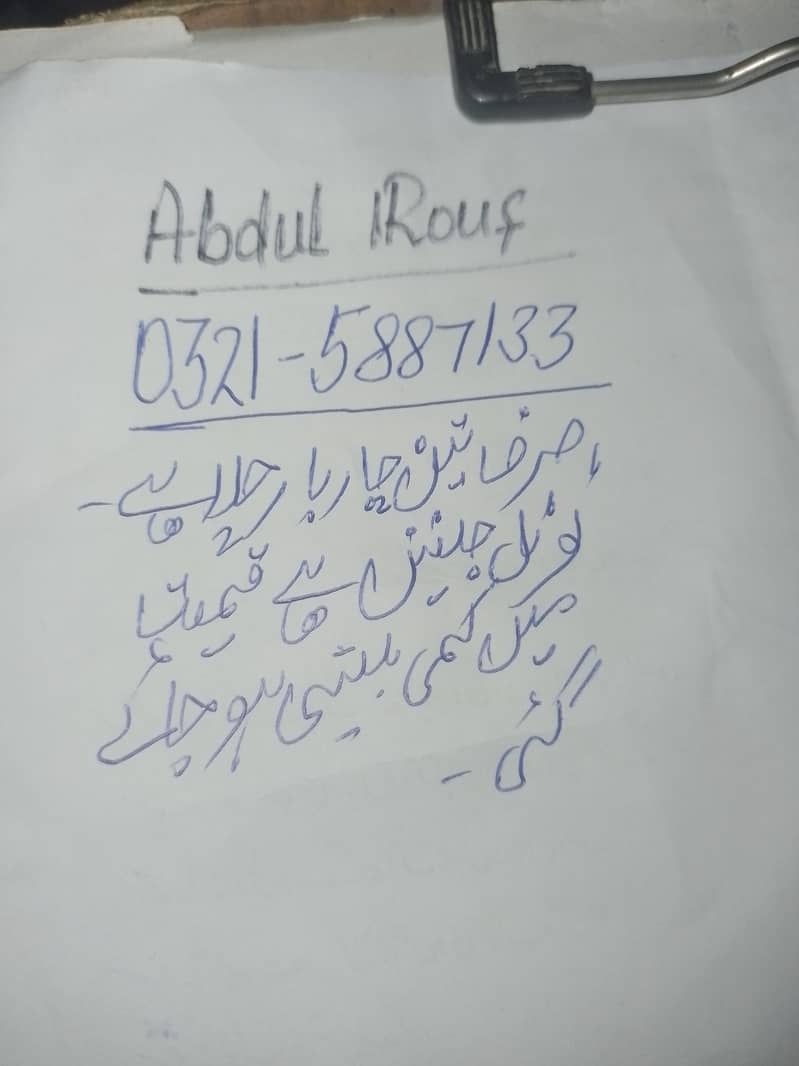 Abdul Rouf
0321-5887133
صرف تین چار بار چلا ہے۔
ٹوٹل جینئن ہے قیمت
میں کمی بیشی ہو جائے
گئی۔